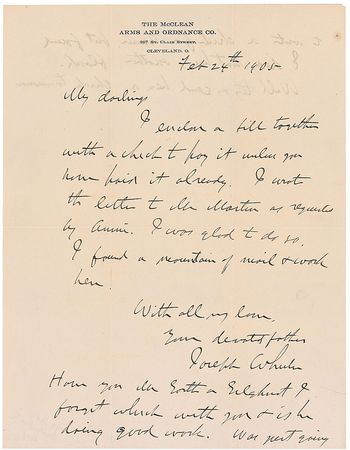 THE MCCLEAN
ARMS AND ORDNANCE CO.
ST. CLAIR STREET,
CLEVELAND, O.
Feb 24th 1905
My darling
I enclose a bill together
with a check to pay it unless you
have paid it already. I wrote
the letter to Mr Martin as requested
by Annie. I was glad to do so.
I found a mountain of mail & work
here.
With all my love,
Your devoted father
Joseph Wheeler
Have you Mr or I
forget which with you & is he
doing good work. Was just going